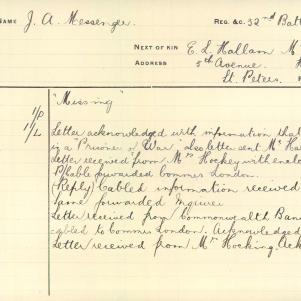 NAME J. A. Messenger. REG. &C. 32nd Batt
NEXT OF KIN E. L. Hallam M
ADDRESS 5th Avenue.
St. Peters.
"Missing"
1/P
1/L Letter acknowledged with information that
is a "Prisoner of War" also letter sent Mr Ha
Letter received from Mrs Hockey with enclo
P/Cable forwarded Commrs London.
(Reply) Cabled information received
same forwarded Inquirer
Letter received from Commonwealth Ban
cabled to Commrs London. Acknowledged
Letter received from Mr Hocking. Ack